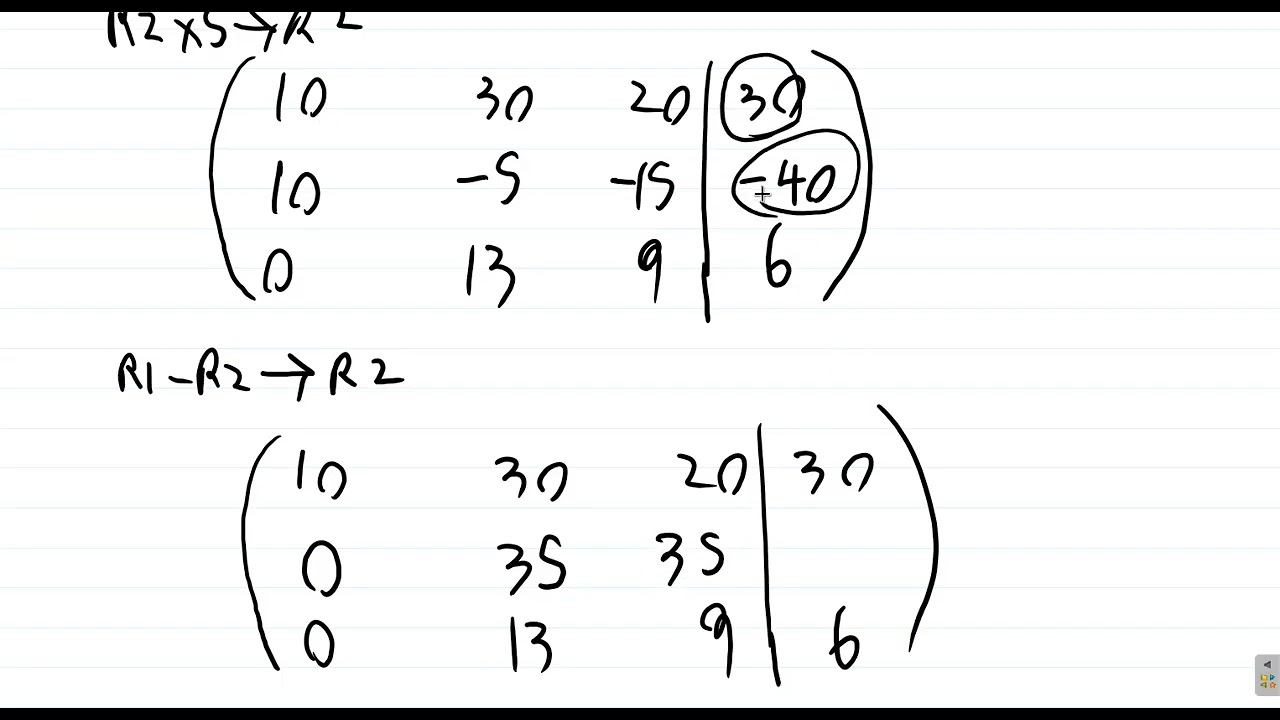 R2 x5 → R2
10 30 20 30
10 -5 -15 -40
0 13 9 6
R1 - R2 → R2
10 30 20 30
0 35 35
0 13 9 6